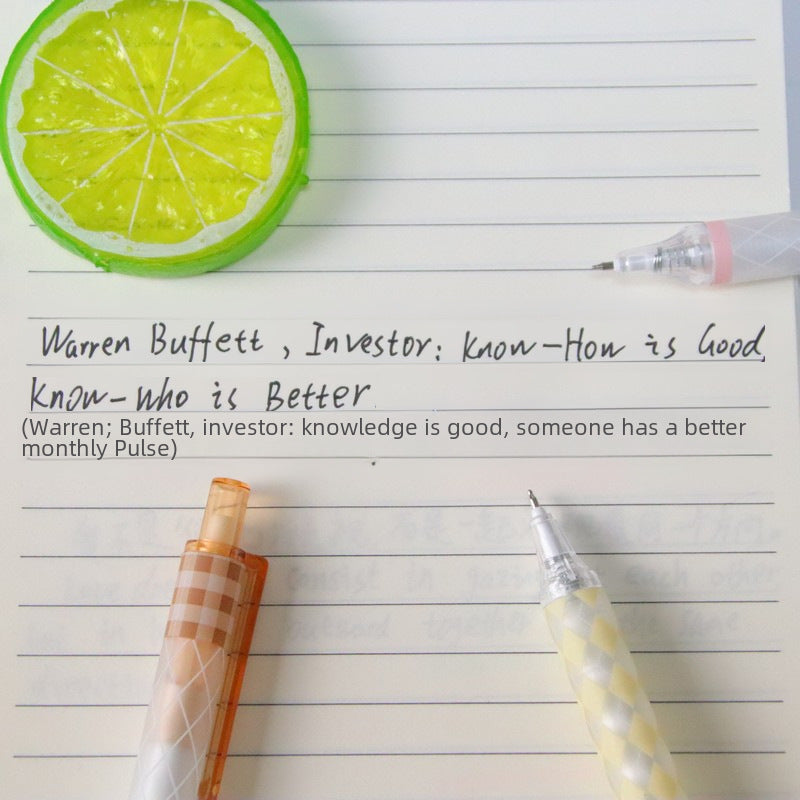 Warren Buffett, Investor: Know-How is Good,
Know-Who is Better
(Warren; Buffett, investor: knowledge is good, someone has a better
monthly Pulse)
in gazing each other
outward together